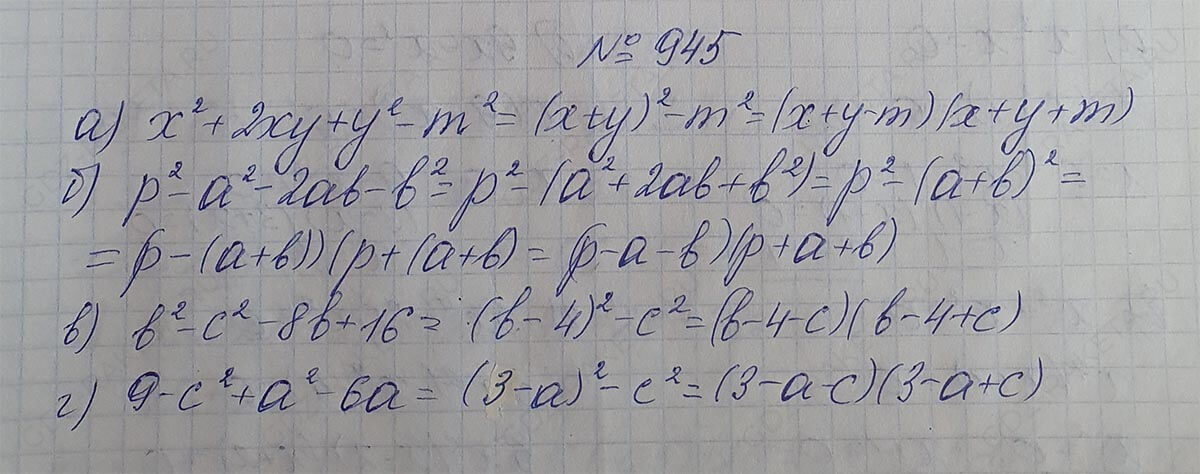 № 945
а) x² + 2xy + y² - m² = (x+y)² - m² = (x+y-m)(x+y+m)
б) p² - a² - 2ab - b² = p² - (a² + 2ab + b²) = p² - (a+b)² =
= (p - (a+b))(p + (a+b) = (p-a-b)(p+a+b)
в) b² - c² - 8b + 16 = (b-4)² - c² = (b-4-c)(b-4+c)
г) 9 - c² + a² - 6a = (3-a)² - c² = (3-a-c)(3-a+c)